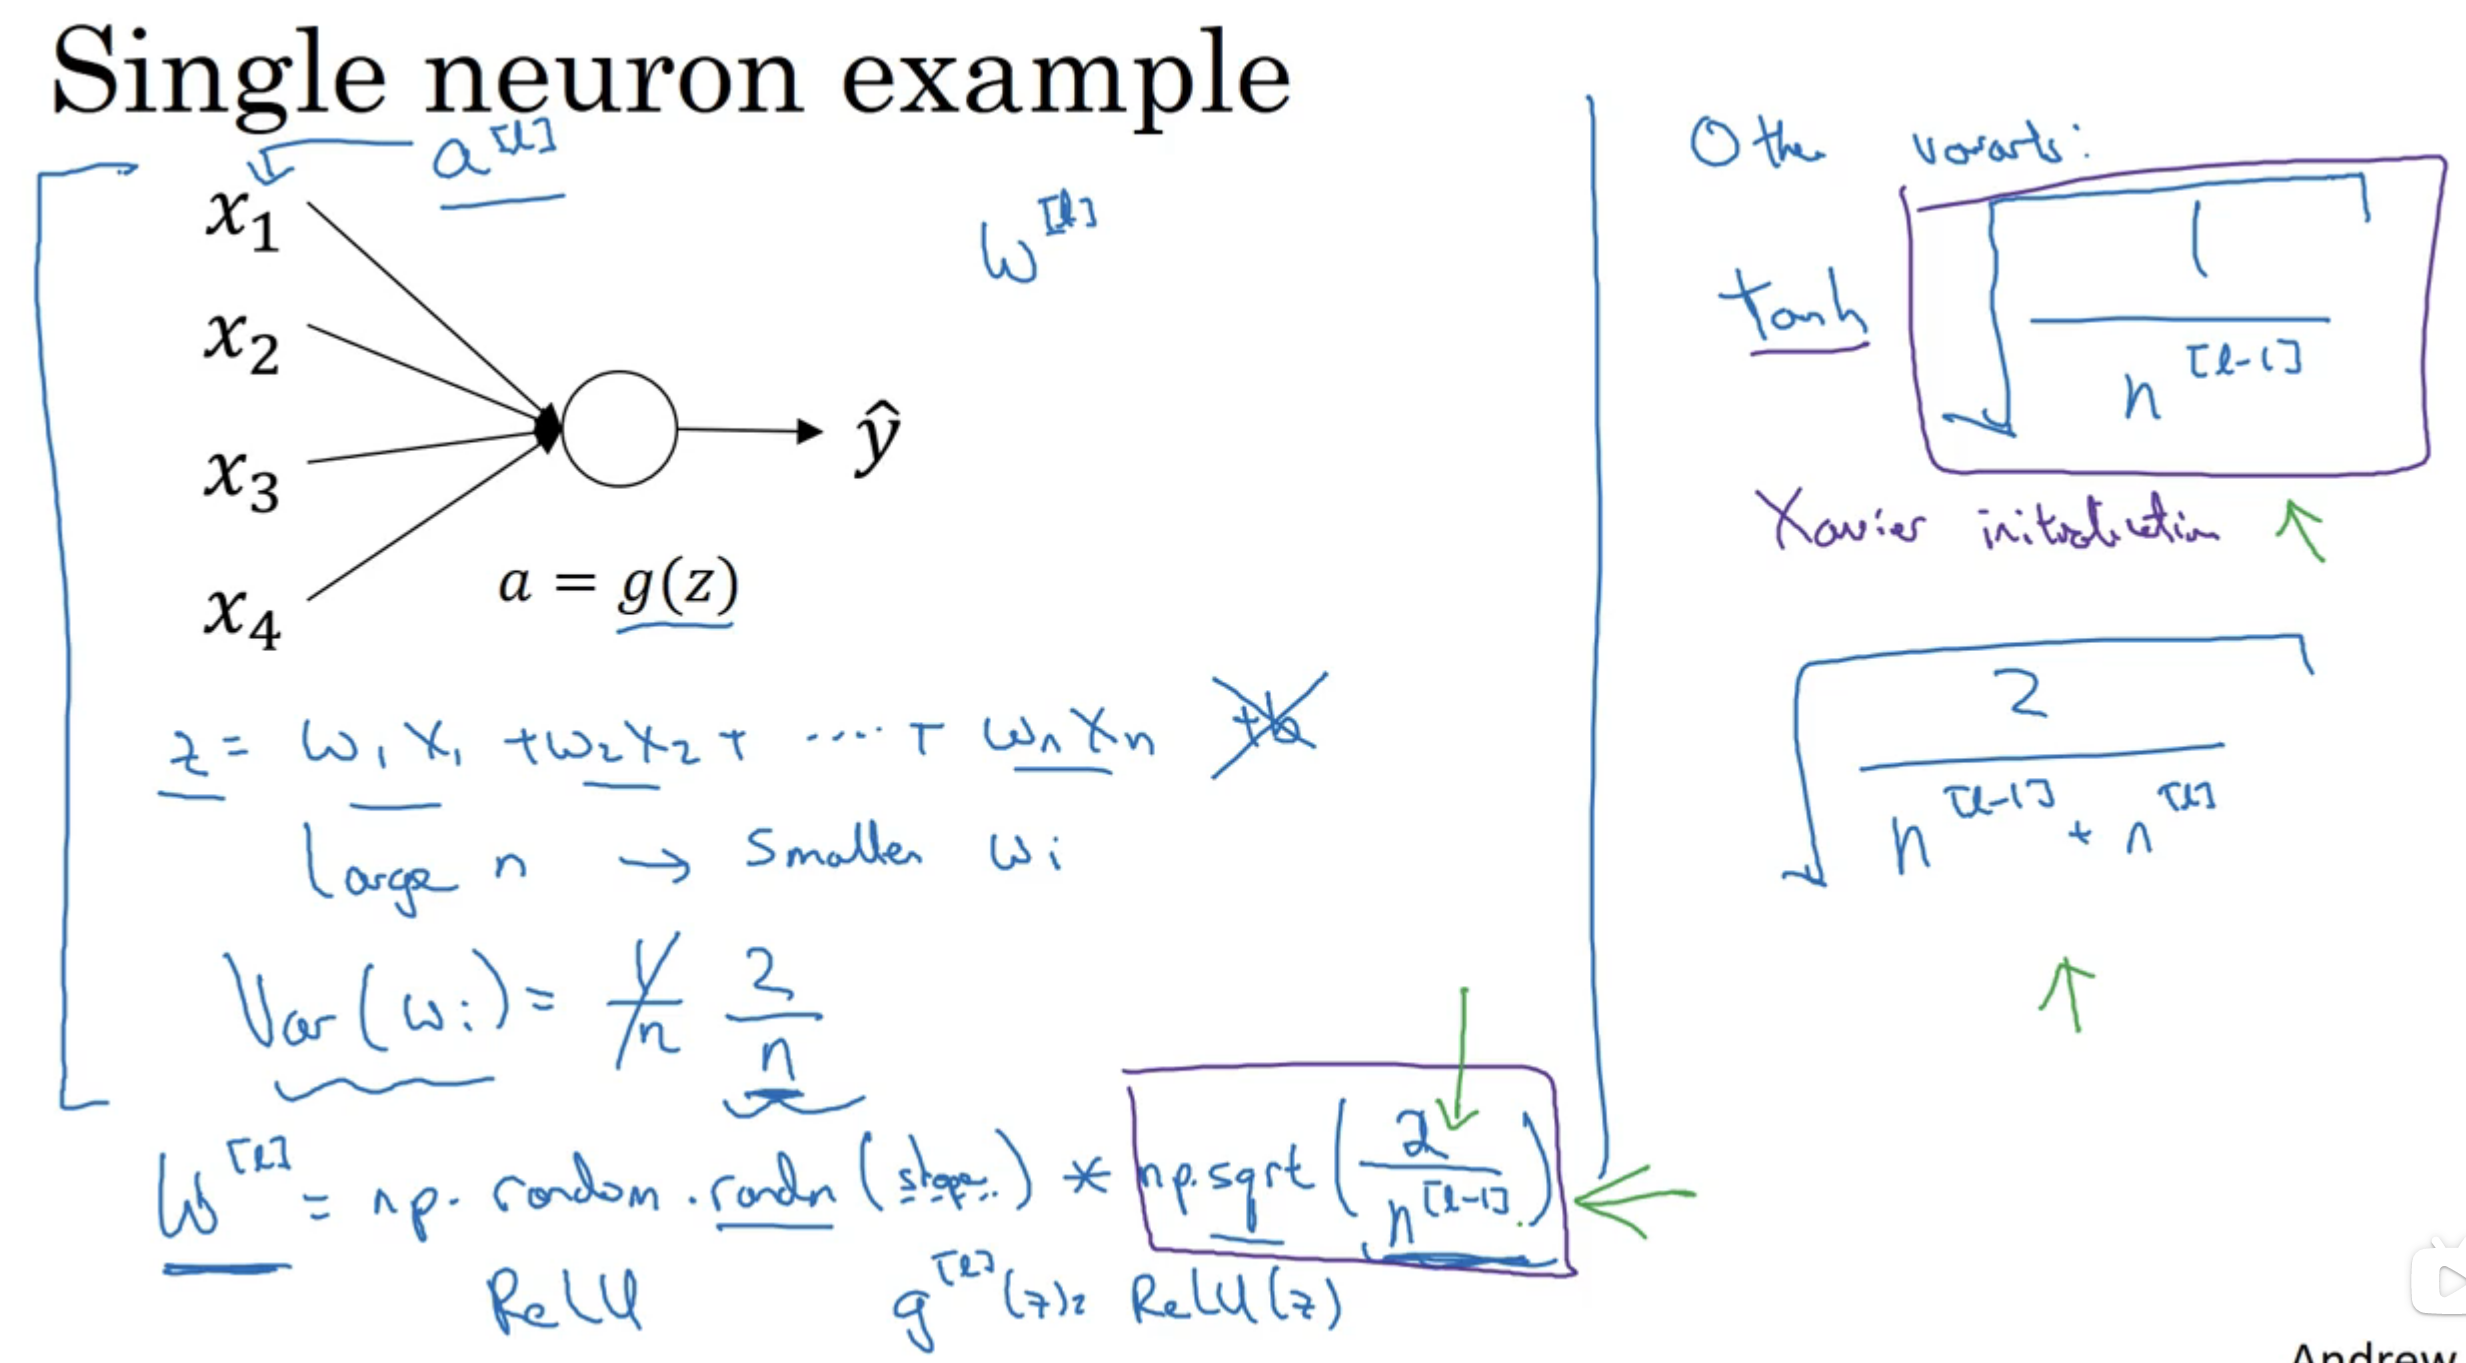 Single neuron example
a^[l]
x₁
w^[l]
x₂
x₃
ŷ
x₄
a = g(z)
z = w₁x₁ + w₂x₂ + ..... + wₙxₙ +b
Large n → Smaller wᵢ
Var(wᵢ) = 1/n 2/n
W^[l] = np.random.randn(shape..) * np.sqrt(2/n^[l-1])
ReLU g^[l](z) = ReLU(z)
Other variants:
tanh √(1/n^[l-1])
Xavier initialization
√(2/(n^[l-1] + n^[l]))
Andrew